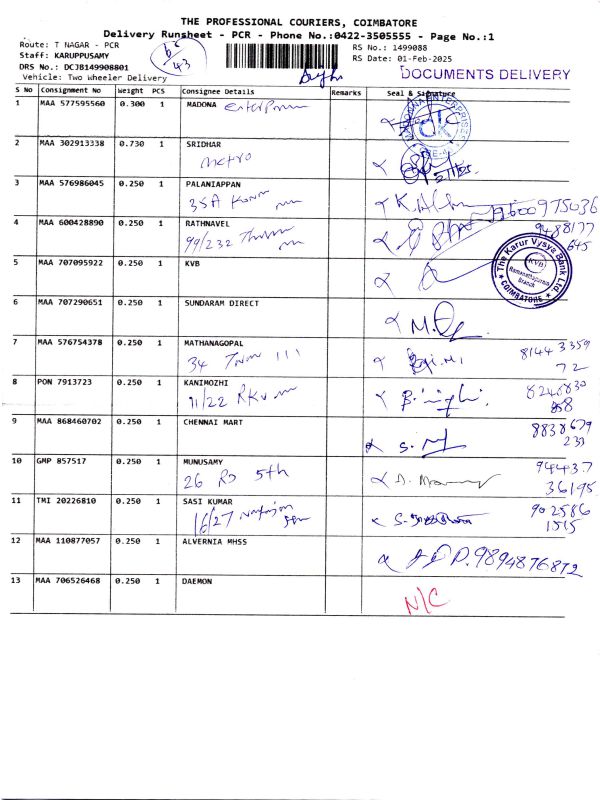 THE PROFESSIONAL COURIERS, COIMBATORE
Delivery Runsheet - PCR - Phone No.:0422-3505555 - Page No.:1
Route: T NAGAR - PCR
RS No.: 1499088
Staff: KARUPPUSAMY
RS Date: 01-Feb-2025
DRS No.: DCJB149908801
43
Vehicle: Two Wheeler Delivery
DOCUMENTS DELIVERY
S No Consignment No Weight PCS Consignee Details Remarks Seal & Signature
1 MAA 577595560 0.300 1 MADONA
2 MAA 302913338 0.730 1 SRIDHAR
metro
3 MAA 576986045 0.250 1 PALANIAPPAN
35A
9600975036
4 MAA 600428890 0.250 1 RATHNAVEL
99/232
9488177
645
5 MAA 707095922 0.250 1 KVB
The Karur Vysya Bank Ltd.
KVB
Ramanathapuram
Branch
COIMBATORE
6 MAA 707290651 0.250 1 SUNDARAM DIRECT
7 MAA 576754378 0.250 1 MATHANAGOPAL
34
81443359
72
8 PON 7913723 0.250 1 KANIMOZHI
11/22
8248830
9 MAA 868460702 0.250 1 CHENNAI MART
8838679
233
10 GMP 857517 0.250 1 MUNUSAMY
26 RD 5th
94437
36195
11 TMI 20226810 0.250 1 SASI KUMAR
16/27
902586
1515
12 MAA 110877057 0.250 1 ALVERNIA MHSS
P. 9894876872
13 MAA 706526468 0.250 1 DAEMON
N/C